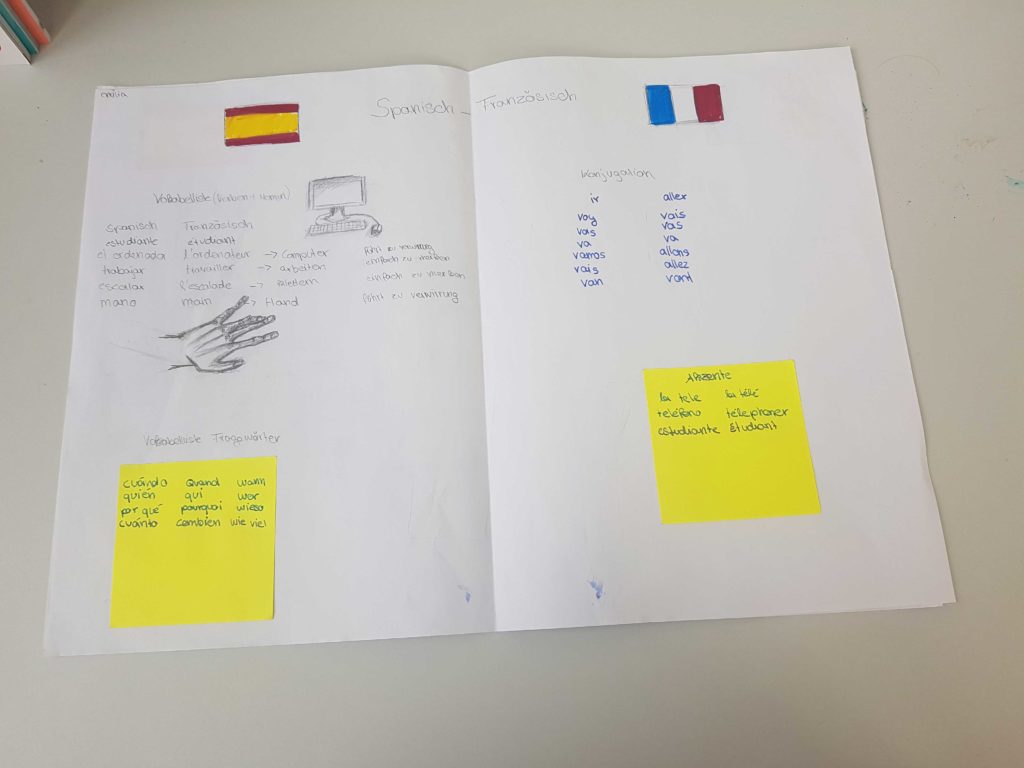 Spanisch - Französisch
Vokabelliste (Verben + Nomen)
Spanisch Französisch
estudiante étudiant
el ordenador l'ordenateur → Computer führt zu verwirrung
trabajar travailler → arbeiten einfach zu merken
escalar l'escalade → klettern einfach zu merken
mano main → Hand führt zu verwirrung
Vokabelliste Fragewörter
cuándo Quand wann
quien qui wer
por qué pourquoi wieso
cuánto combien wie viel
Konjugation
ir aller
voy vais
vas
va va
vamos allons
vais allez
van vont
Akzente
la tele la télé
teléfono télephoner
estudiante étudiant